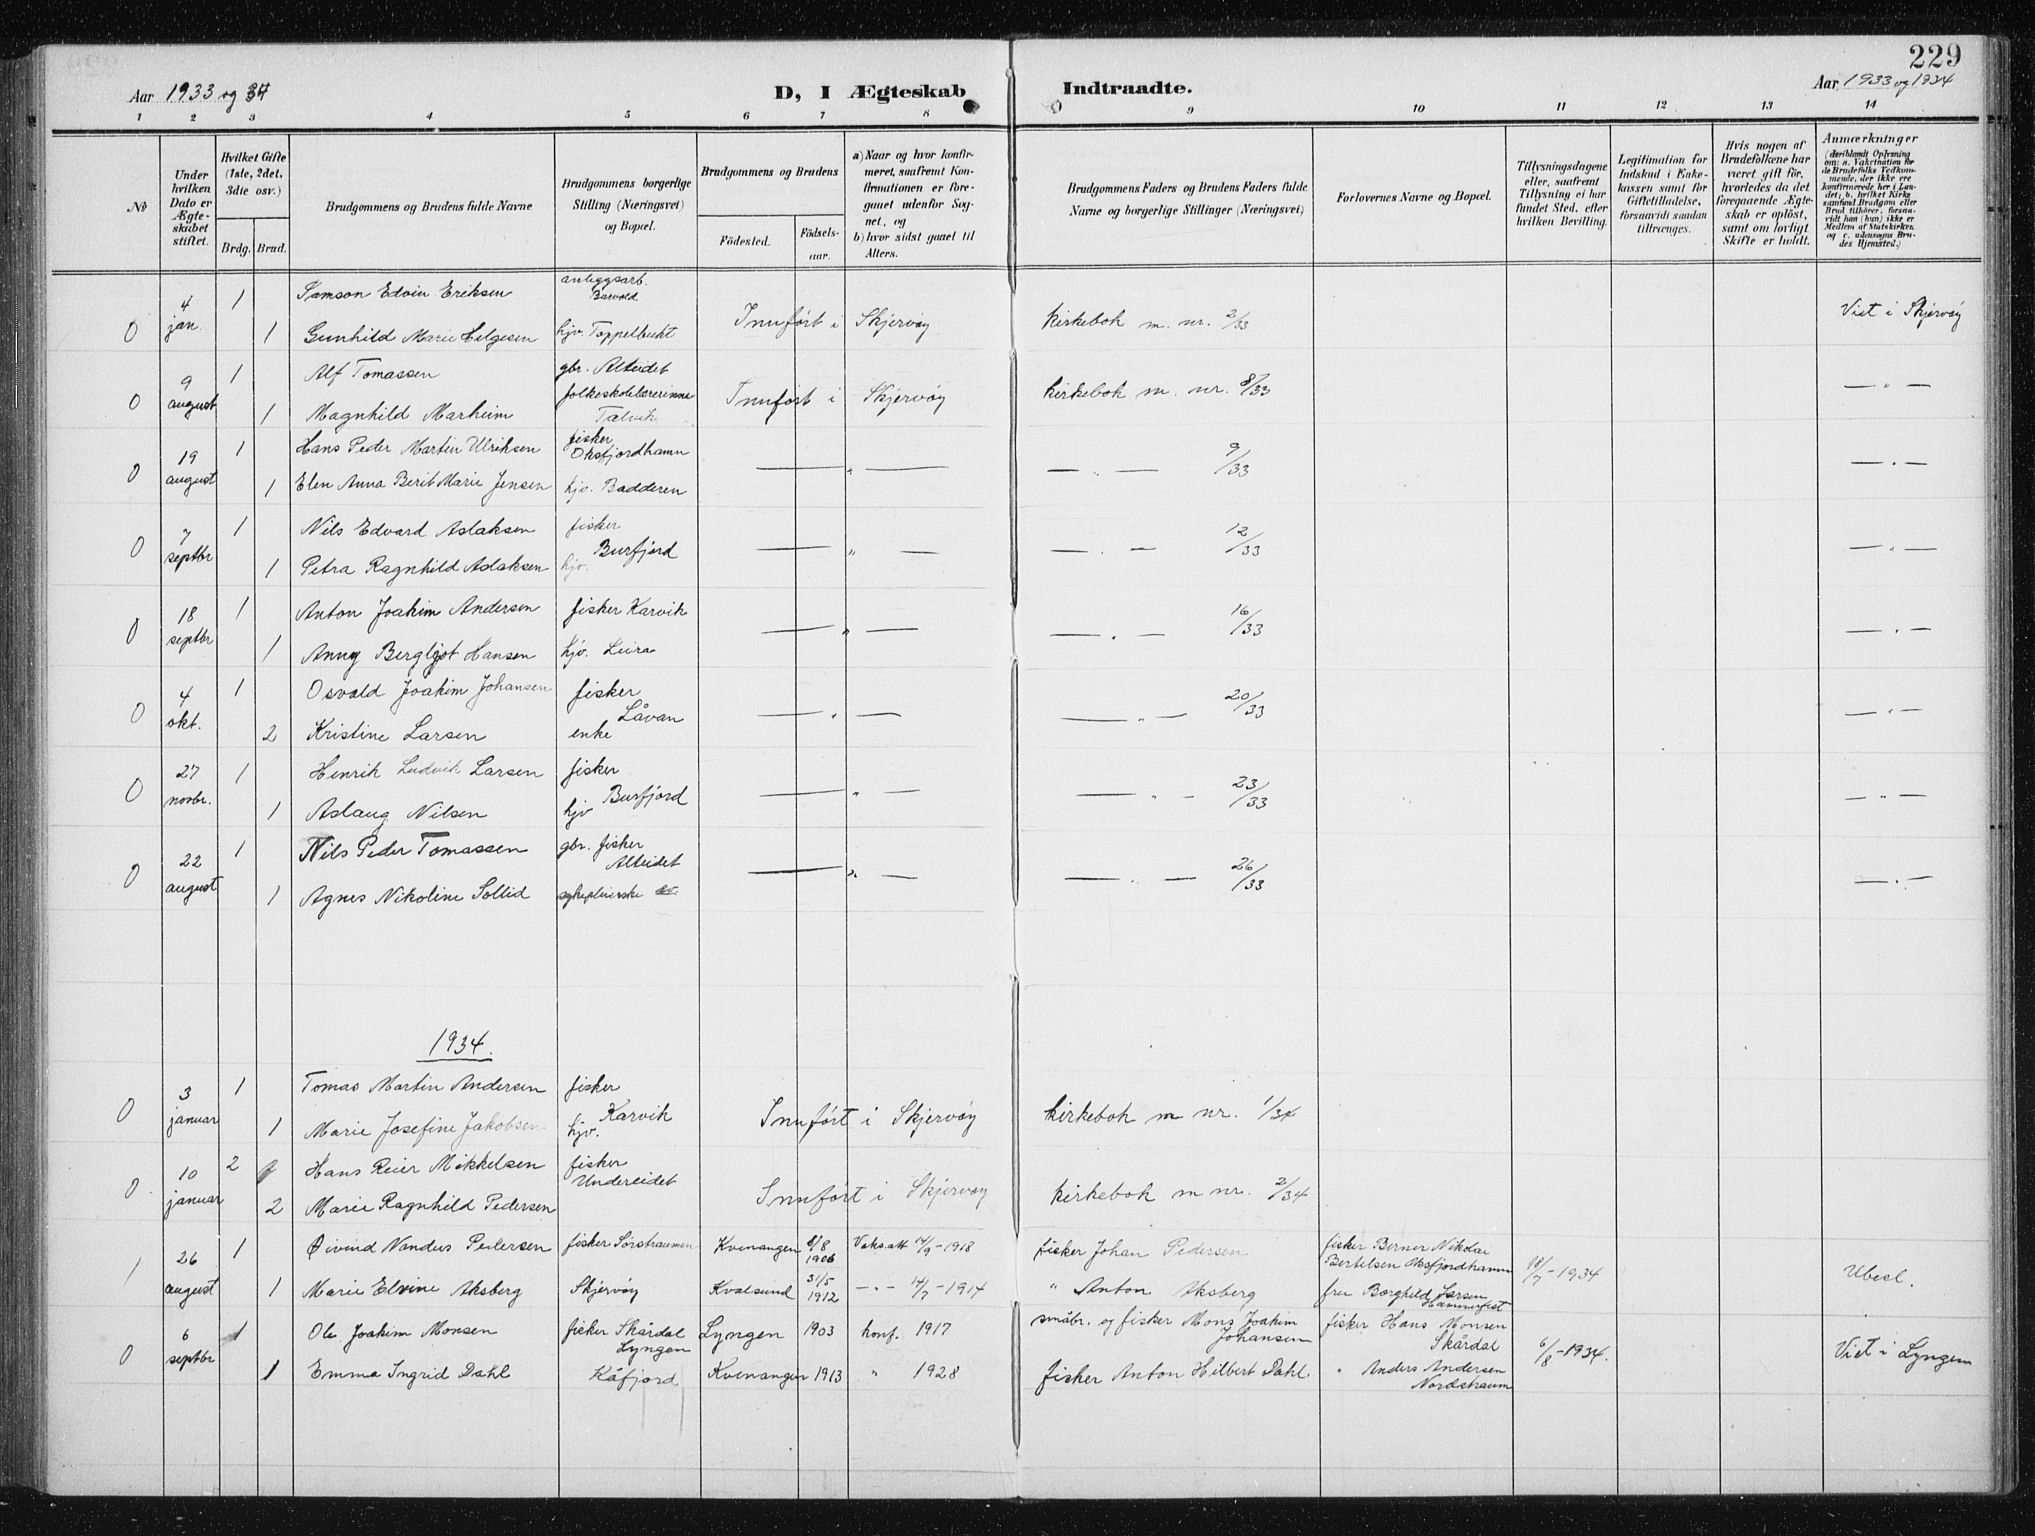 229
Aar 1933 og 34
D, I Ægteskab Indtraadte.
Aar 1933 og 1934
1 2 3 4 5 6 7 8 9 10 11 12 13 14
No
Under hvilken Dato er Ægteskabet stiftet.
Hvilket Gifte (1ste, 2det, 3die osv.)
Brdg. Brud.
Brudgommens og Brudens fulde Navne
Brudgommens borgerlige Stilling (Næringsvei) og Bopæl.
Brudgommens og Brudens
Födested.
Födselsaar.
a) Naar og hvor konfirmeret, saafremt Konfirmationen er foregaaet udenfor Sognet, og
b) hvor sidst gaaet til Alters.
Brudgommens Faders og Brudens Faders fulde Navne og borgerlige Stillinger (Næringsvei)
Forlovernes Navne og Bopæl.
Tillysningsdagene eller, saafremt Tillysning ei har fundet Sted, efter hvilken Bevilling.
Legitimation for Indskud i Enkekassen samt for Giftetilladelse, forsaavidt saadan tiltrænges.
Hvis nogen af Brudefolkene har været gift för, hvorledes da det foregaaende Ægteskab er oplöst, samt om lovligt Skifte er holdt.
Anmærkninger
(deriblandt Oplysning om: a. Vakcination för de Brudefolks Vedkommende, der ikke ere konfirmerede her i Landet; b. hvilket Kirkesamfund Brudgom eller Brud tilhörer, forsaavidt han (hun) ikke er Medlem af Statskirken, og c. udensogns Brudes Hjemsted.)
0 4 jan. 1 Samson Edvin Eriksen anleggsarb. Barvold Innført i Skjervøy kirkebok m. nr. 2/33 Viet i Skjervøy
1 Gunhild Marie Helgesen hjv. Toppelbukt
0 9 august 1 Alf Tomassen gbr. Alteidet Innført i Skjervøy kirkebok m. nr. 8/33 — " —
1 Magnhild Marheim folkeskolelærerinne Talvik
0 19 august 1 Hans Peder Martin Ulriksen fisker Oksfjordhamn — " — — " — 9/33 — " —
1 Elen Anna Berit Marie Jensen hjv. Badderen
0 7 septbr 1 Nils Edvard Aslaksen fisker Burfjord — " — — " — 12/33 — " —
1 Petra Ragnhild Aslaksen hjv.
0 18 septbr 1 Anton Joakim Andersen fisker Karvik — " — — " — 16/33 — " —
1 Anny Bergljot Hansen hjv. Leira
0 4 okt. 1 Osvald Joakim Johansen fisker Låvan — " — — " — 20/33 — " —
2 Kristine Larsen enke
0 27 novbr. 1 Henrik Ludvik Larsen fisker Burfjord — " — — " — 23/33 — " —
1 Aslaug Nilsen hjv
0 22 august 1 Nils Peder Tomassen gbr. fisker Alteidet — " — — " — 26/33 — " —
1 Agnes Nikoline Sollid sykepleierske
1934.
0 3 januar 1 Tomas Martin Andersen fisker Karvik Innført i Skjervøy kirkebok m nr. 1/34
1 Marie Josefine Jakobsen hjv.
0 10 januar 2 Hans Reier Mikkelsen fisker Undereidet Innført i Skjervøy kirkebok m nr. 2/34
2 Marie Ragnhild Pedersen
1 26 august 1 Øivind Nandus Pedersen fisker Sørstraumen Kvenangen 8/8 1906 Vaks.att 14/9-1918 fisker Johan Pedersen fisker Berner Nikolai Bertelsen Oksfjordhamn 18/7-1934 Ubesl.
1 Marie Elvine Aksberg Skjervøy Kvalsund 31/5 1912 — " — 14/7-1914 " Anton Aksberg fru Borghild Larsen Hammerfest
0 6 septbr 1 Ole Joakim Monsen fisker Skårdal Lyngen Lyngen 1903 konf. 1917 småbr. og fisker Mons Joakim Johansen fisker Hans Monsen Skårdal 6/8-1934. Viet i Lyngen
1 Emma Ingrid Dahl Kåfjord Kvenangen 1913 " 1928 fisker Anton Hilbert Dahl " Anders Andersen Nordstraum